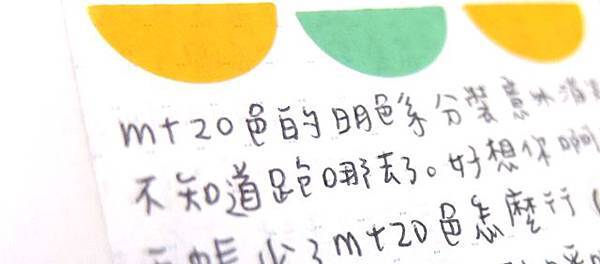 mt20色的明色系分裝意外消
不知道跑哪去了。好想你啊
手帳少了mt20色怎麼行(